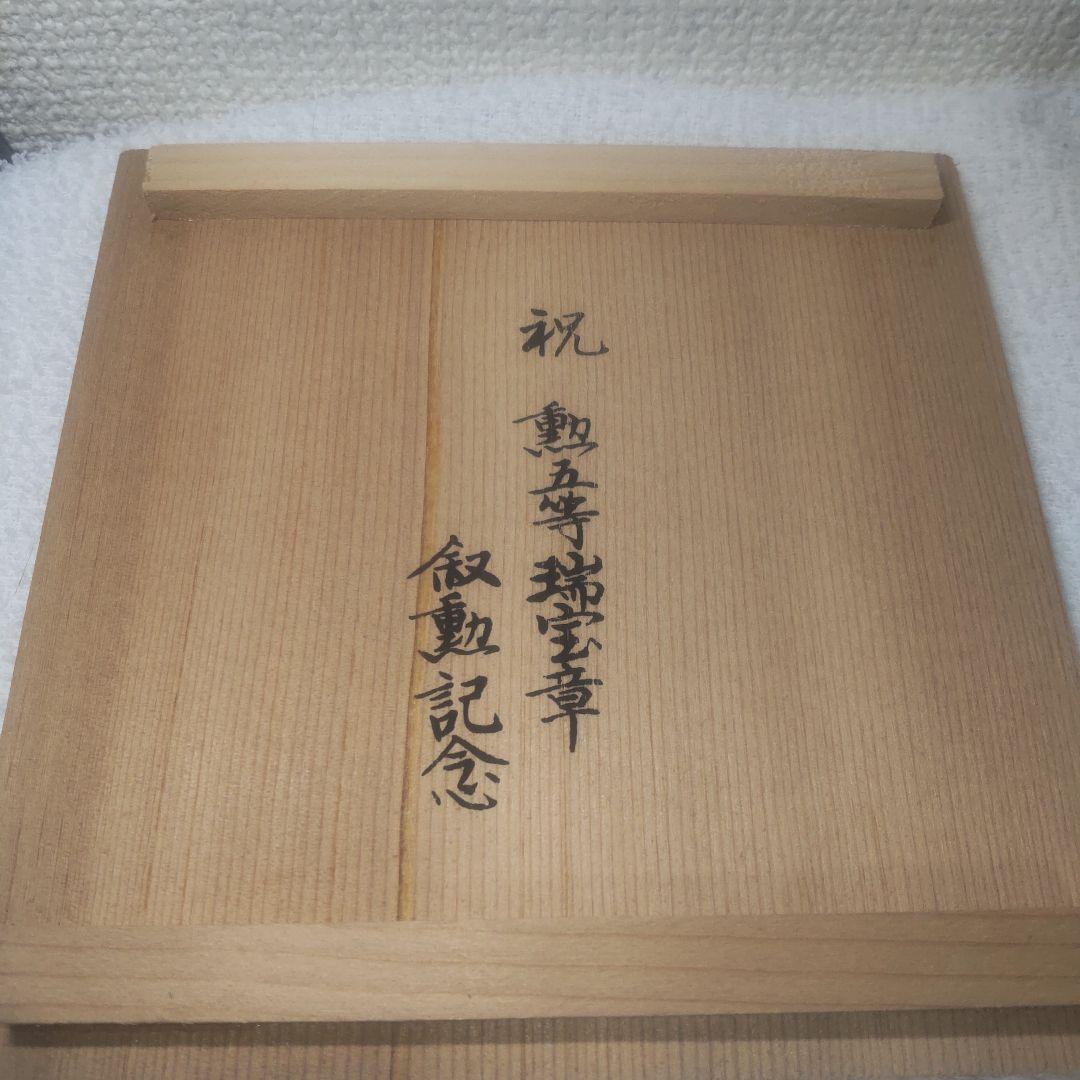 祝 勲五等瑞宝章
叙勲記念